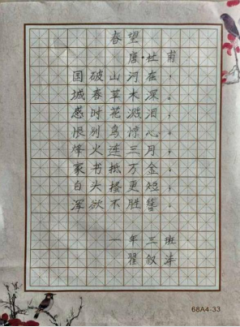 春望
唐·杜甫
国破山河在，
城春草木深。
感时花溅泪，
恨别鸟惊心。
烽火连三月，
家书抵万金。
白头搔更短，
浑欲不胜簪。
一年三班
68A4-33